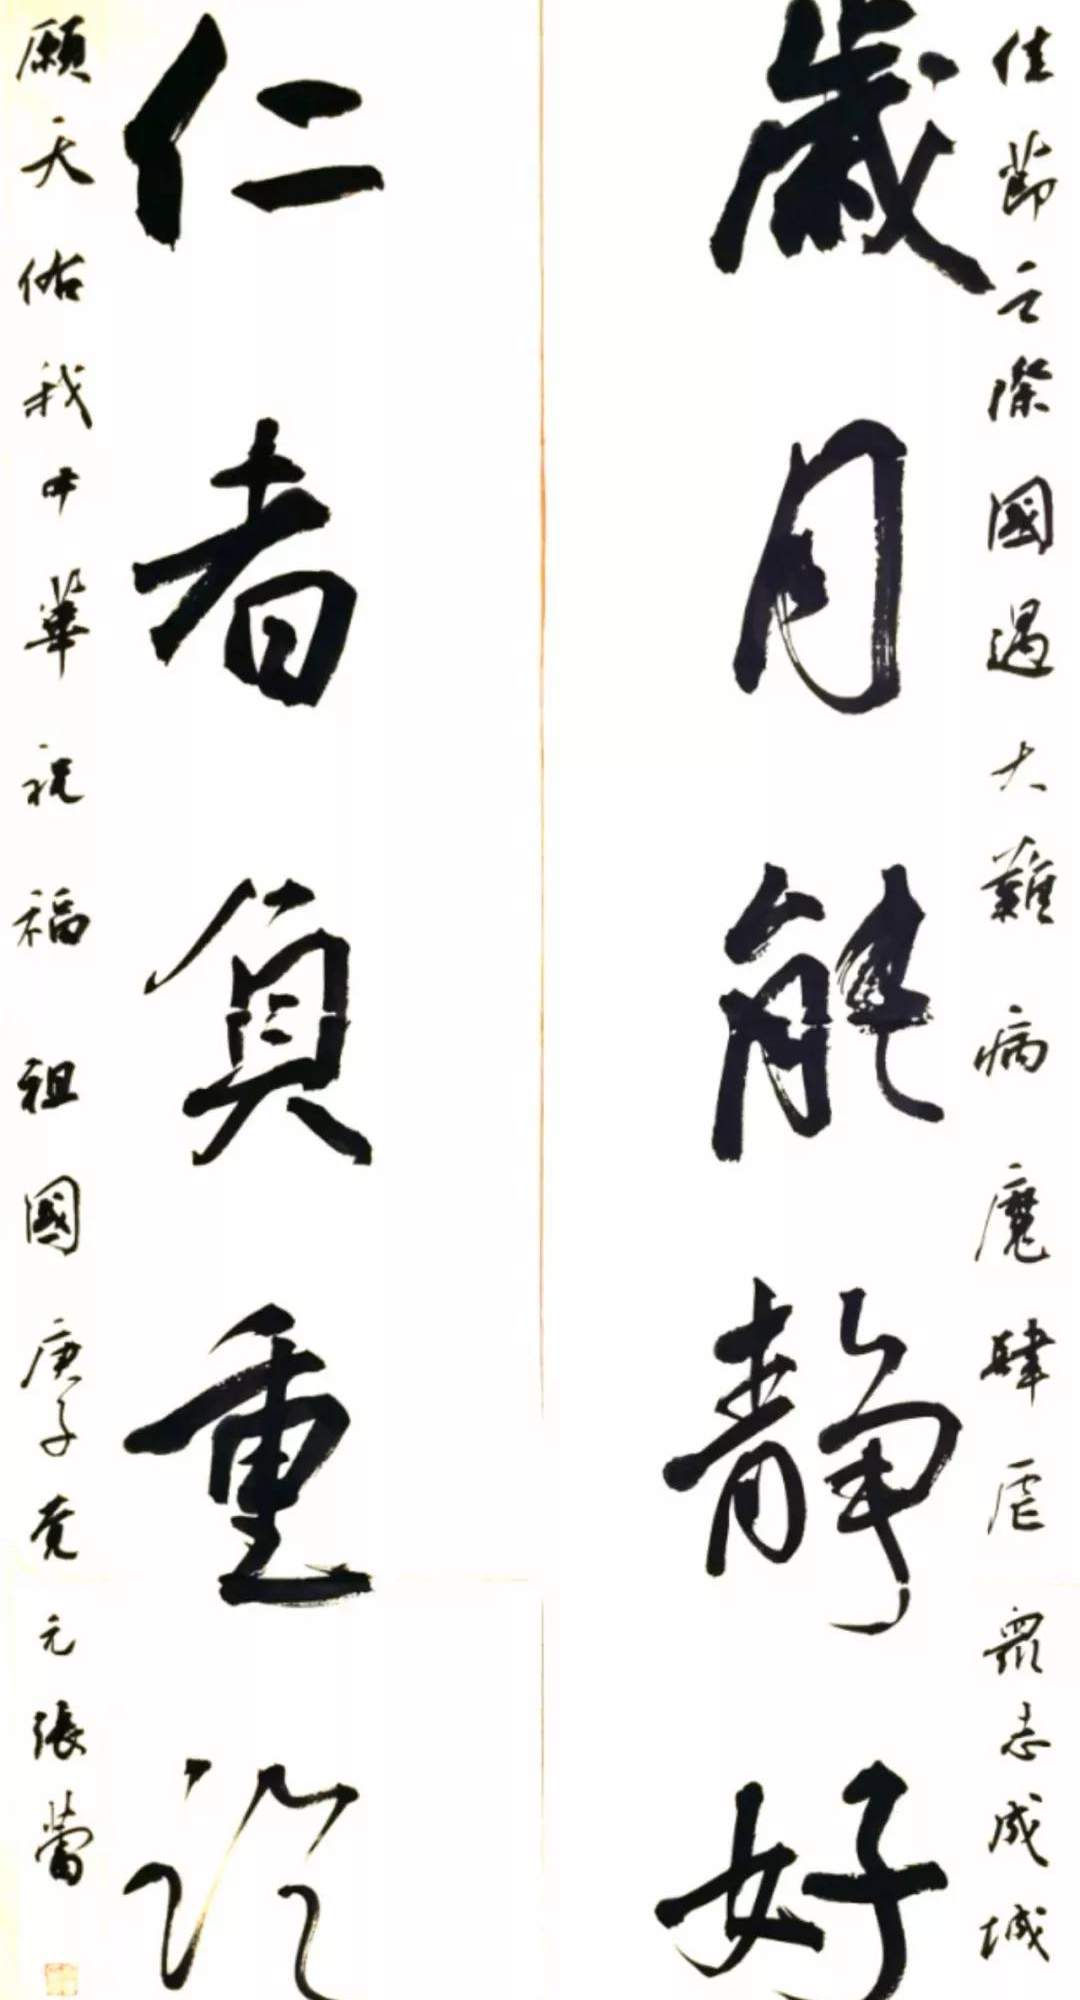 佳節之際國遇大難病魔肆虐眾志成城
歲月能靜好
仁者負重
願天佑我中華祝福祖國庚子元張蕾